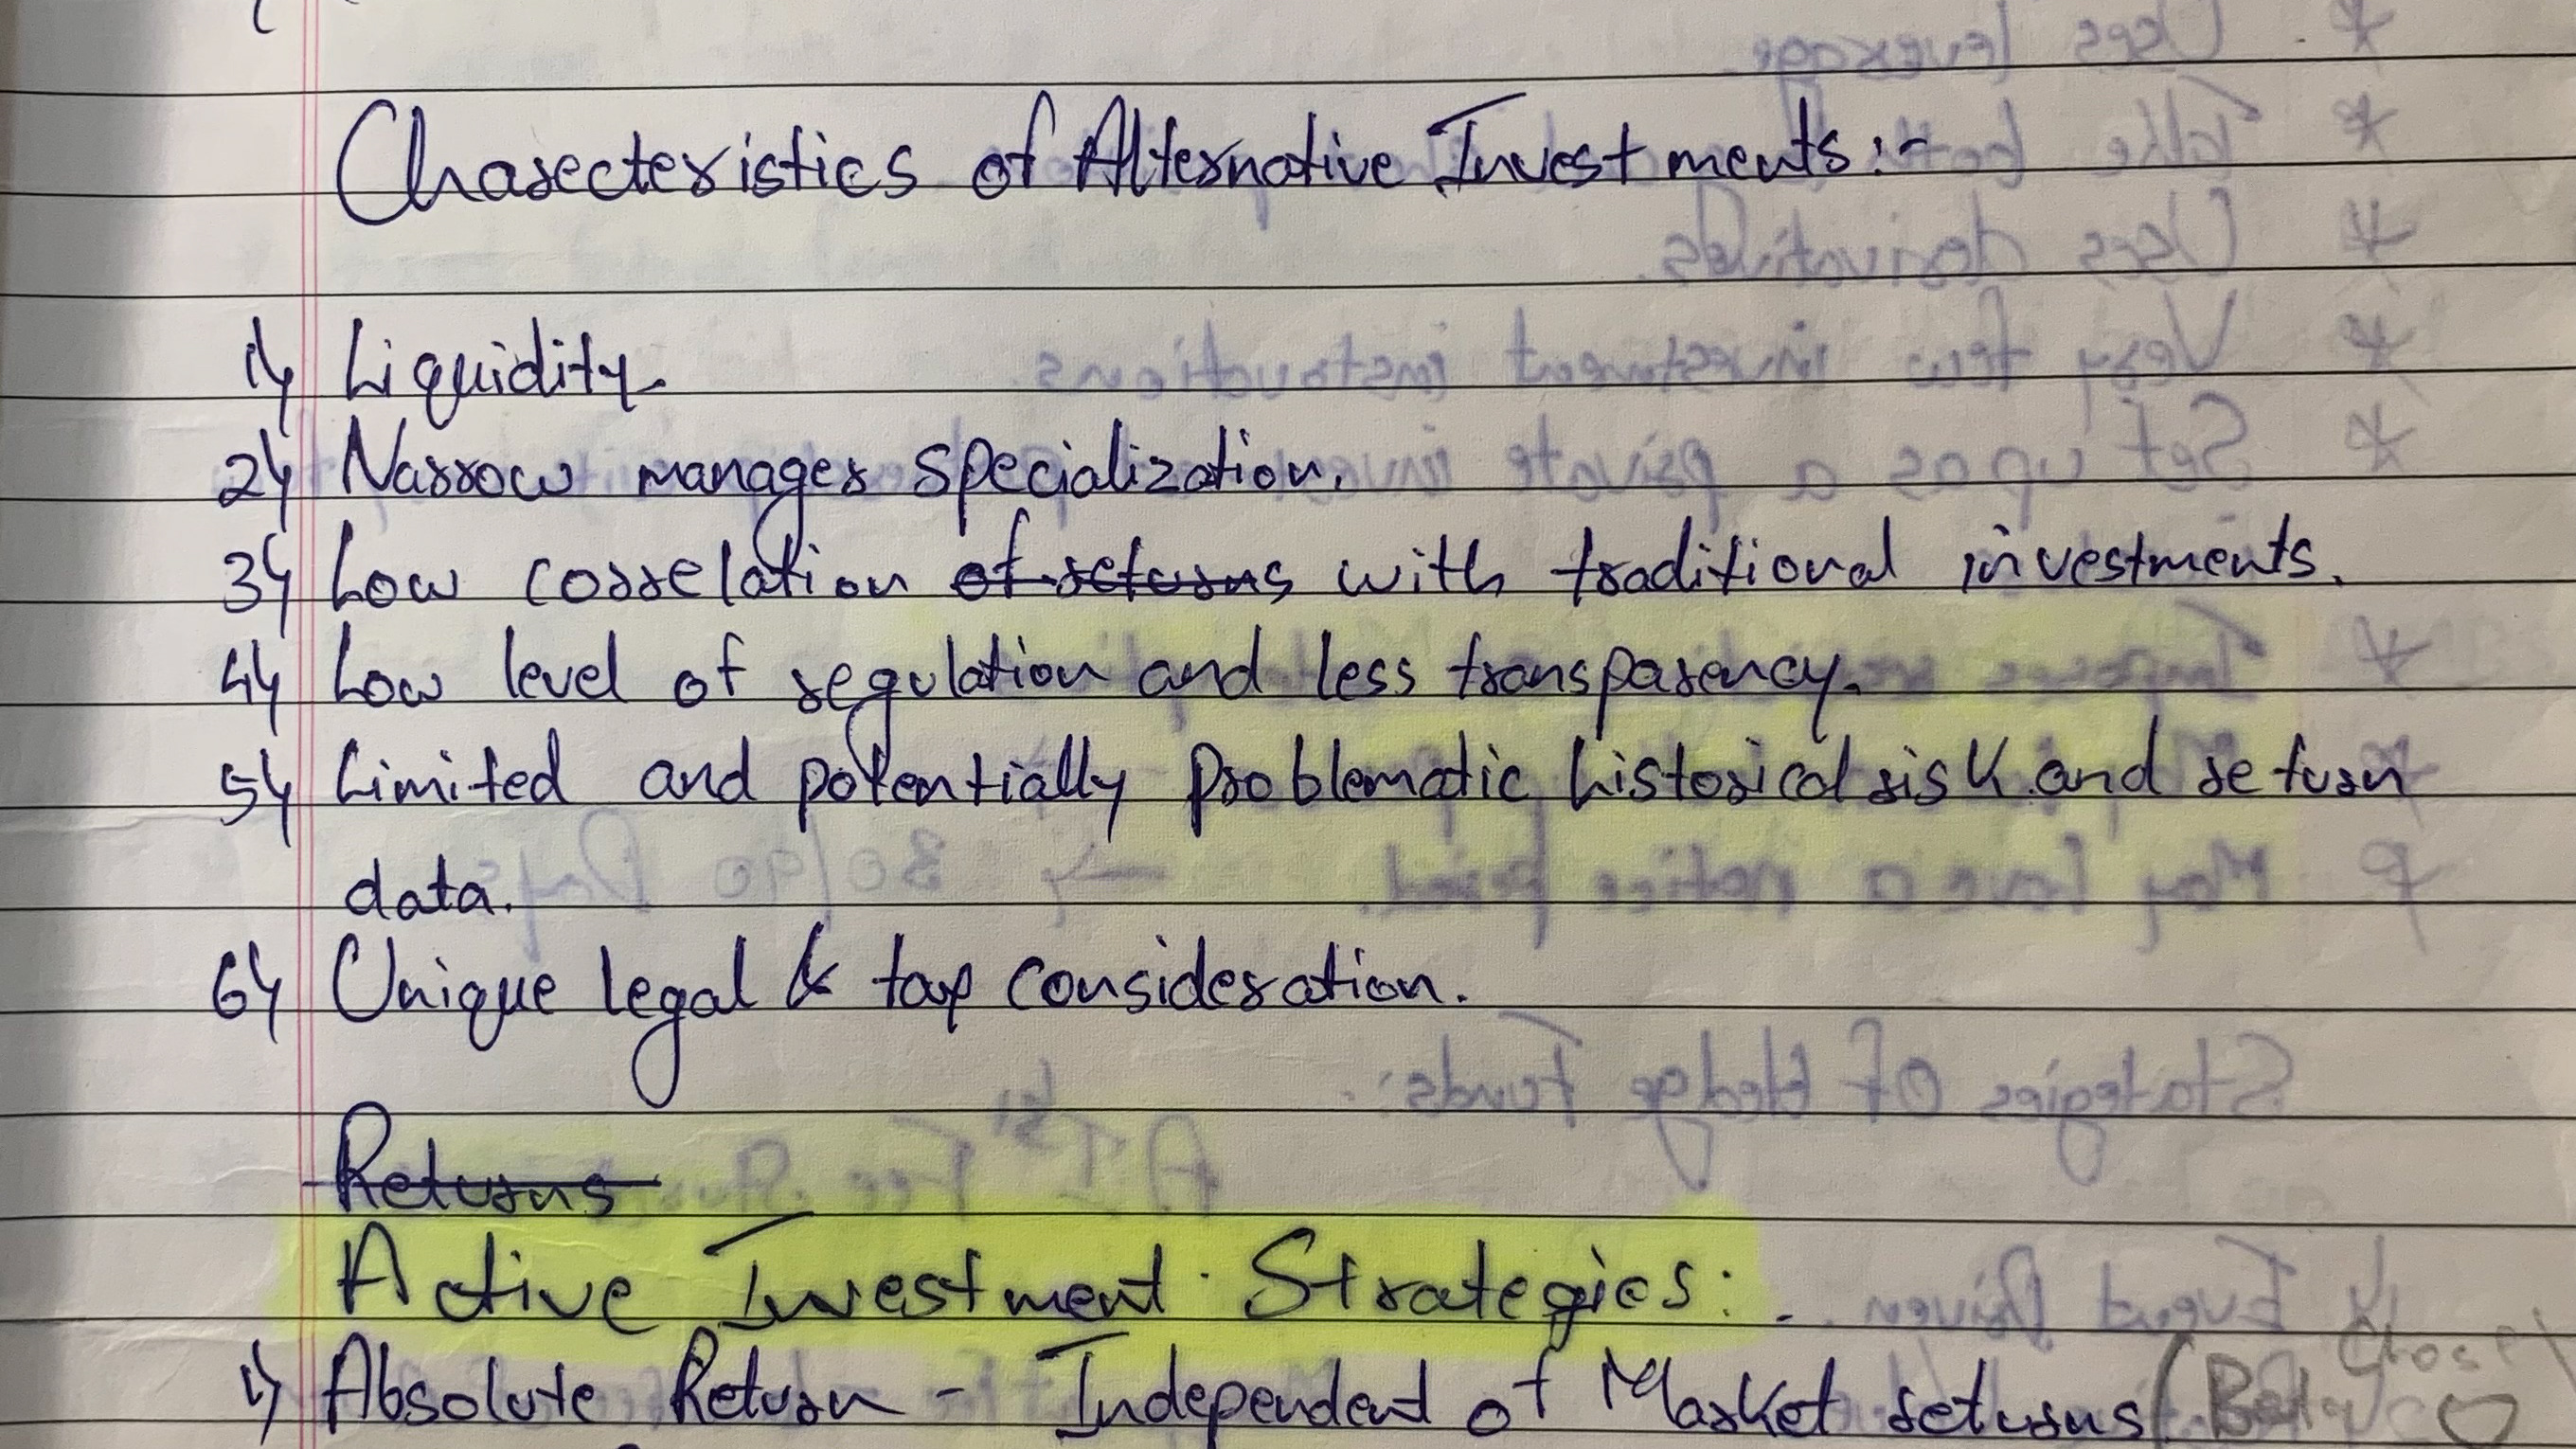 Charecteristics of Alternative Investments:-
1) Liquidity.
2) Narrow manager specialization.
3) Low correlation of returns with traditional investments.
4) Low level of regulation and less transparency.
5) Limited and potentially problematic historical risk and return
data.
6) Unique legal & tax consideration.
Returns
Active Investment Strategies:-
1) Absolute Return - Independent of Market returns